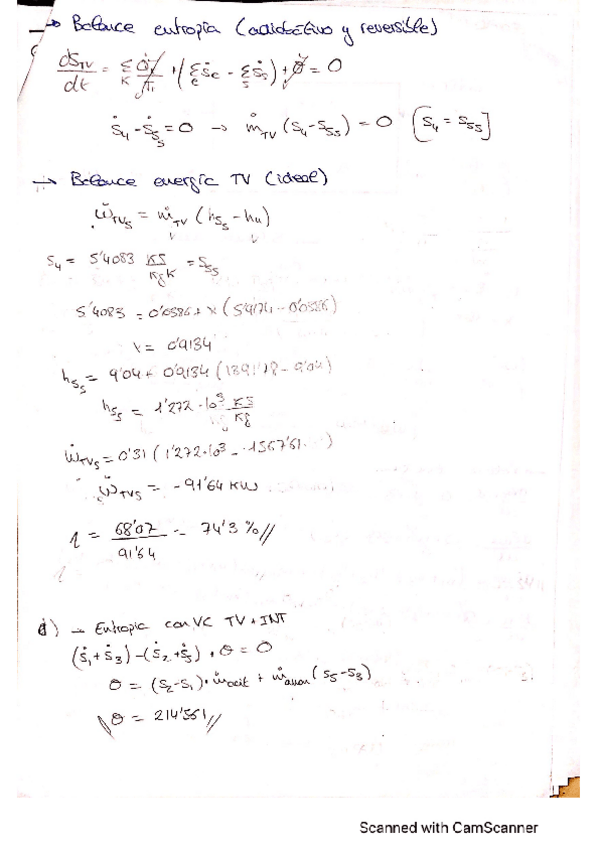 → Balance entropía (adiabático y reversible)
dS_TV/dt = Σ_K Q̇/T + (Σ_e Ṡe - Σ_s Ṡs) + σ̇ = 0
Ṡ4 - Ṡ5s = 0 → ṁ_TV (S4 - S5s) = 0 [S4 = S5s]
→ Balance energía TV (ideal)
Ẇ_TVs = ṁ_TV (h5s - h4)
S4 = 5'4083 KJ/KgK = S5s
5'4083 = 0'0586 + x (5'9174 - 0'0586)
x = 0'9134
h5s = 9'04 + 0'9134 (1391'78 - 9'04)
h5s = 1'272·10³ KJ/Kg
Ẇ_TVs = 0'31 (1'272·10³ - 1567'61)
Ẇ_TVs = -91'64 KW
η = 68'07/91'64 = 74'3 %//
d) → Entropía con VC TV + INT
(Ṡ1 + Ṡ3) - (Ṡ2 + Ṡ5) + σ = 0
σ = (S2 - S1)·ṁaceit + ṁamon (S5 - S3)
σ = 214'551//
Scanned with CamScanner